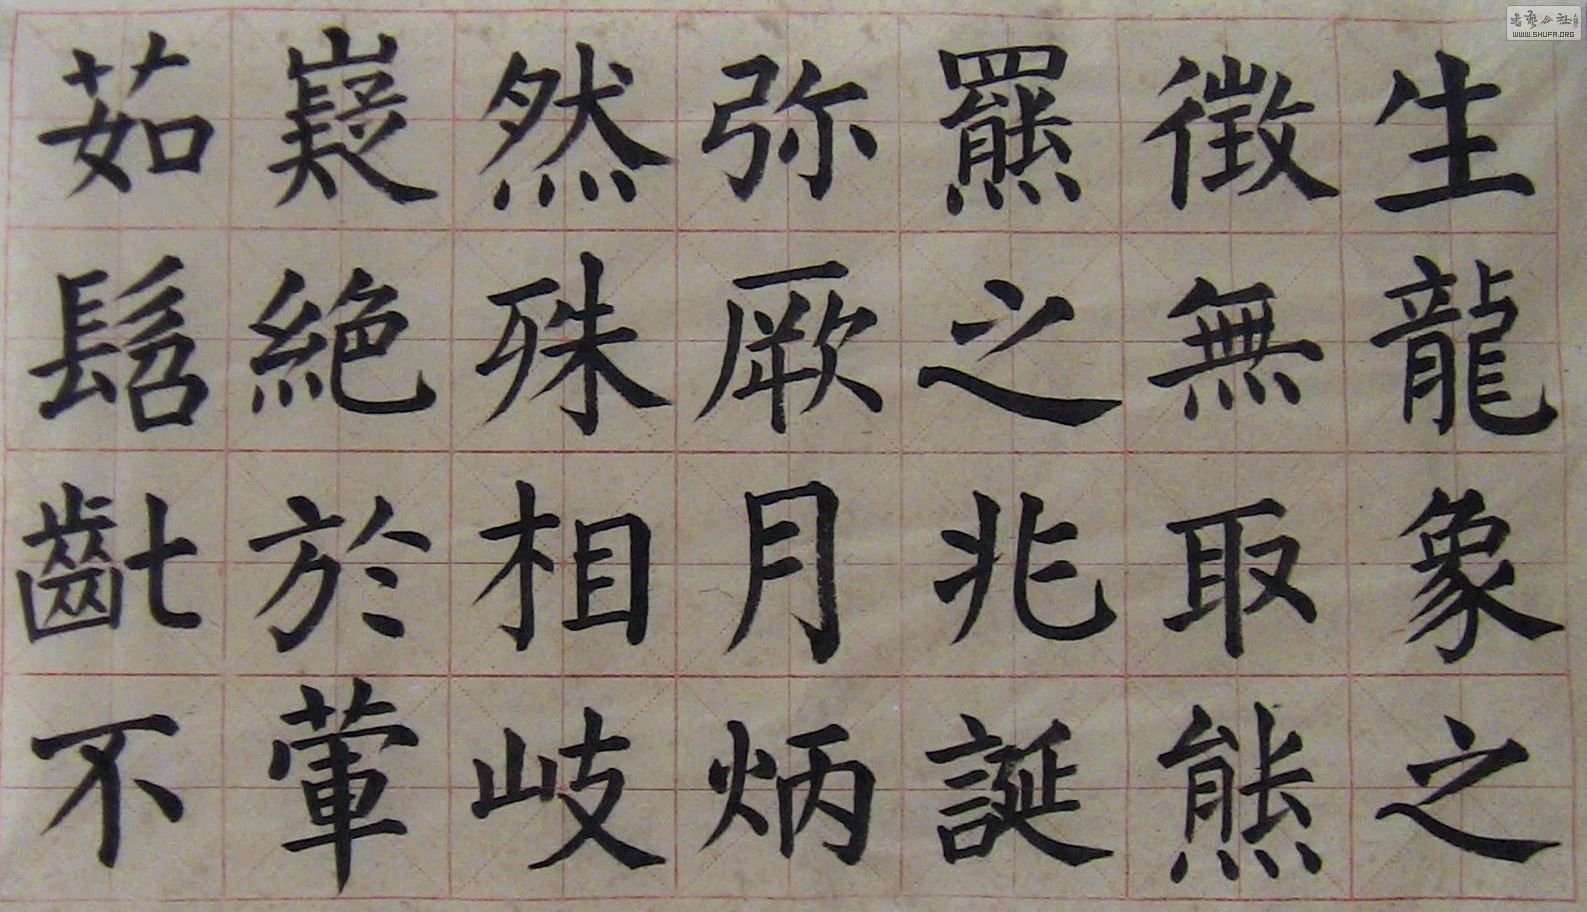 生龍象之
徵無取熊
羆之兆誕
弥厥月炳
然殊相岐
嶷絶於葷
茹髫齔不
书艺公社
WWW.SHUFA.ORG